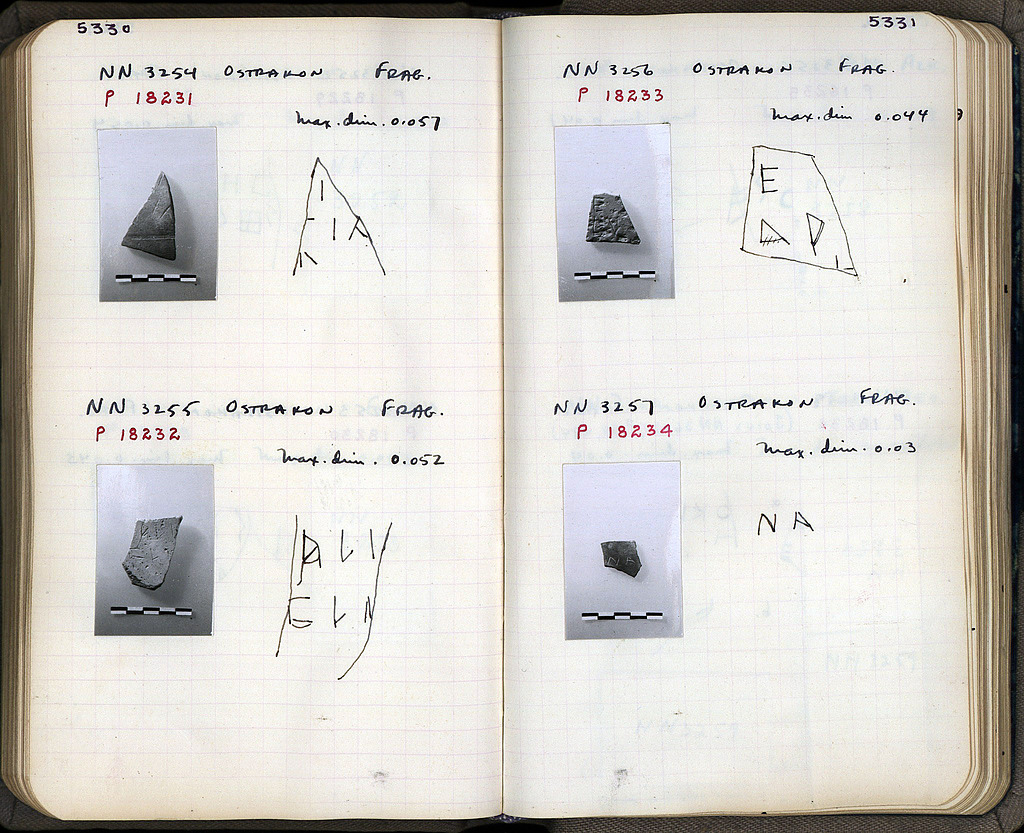 5330
NN 3254 OSTRAKON FRAG.
P 18231
Max. dim. 0.057
NN 3255 OSTRAKON FRAG.
P 18232
Max. dim. 0.052
5331
NN 3256 OSTRAKON FRAG.
P 18233
Max. dim 0.044
E
NN 3257 OSTRAKON FRAG.
P 18234
Max. dim. 0.03
NA